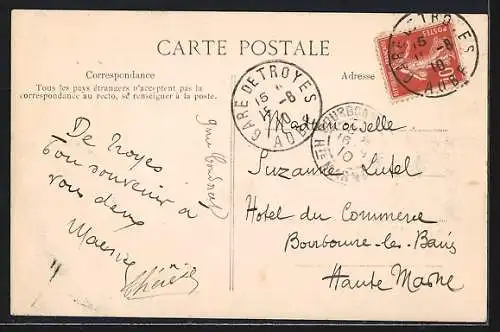 CARTE POSTALE
Correspondance
Tous les pays étrangers n'acceptent pas la
correspondance au recto, se renseigner à la poste.
Adresse
GARE DE TROYES
15 -8
10
AUBE
GARE DE TROYES
15 -8
10
AUBE
POSTES
10
De Troyes
bon souvenir à
vous deux
Mademoiselle
Suzanne
Hotel du Commerce
Bourbonne-les-Bains
Haute Marne